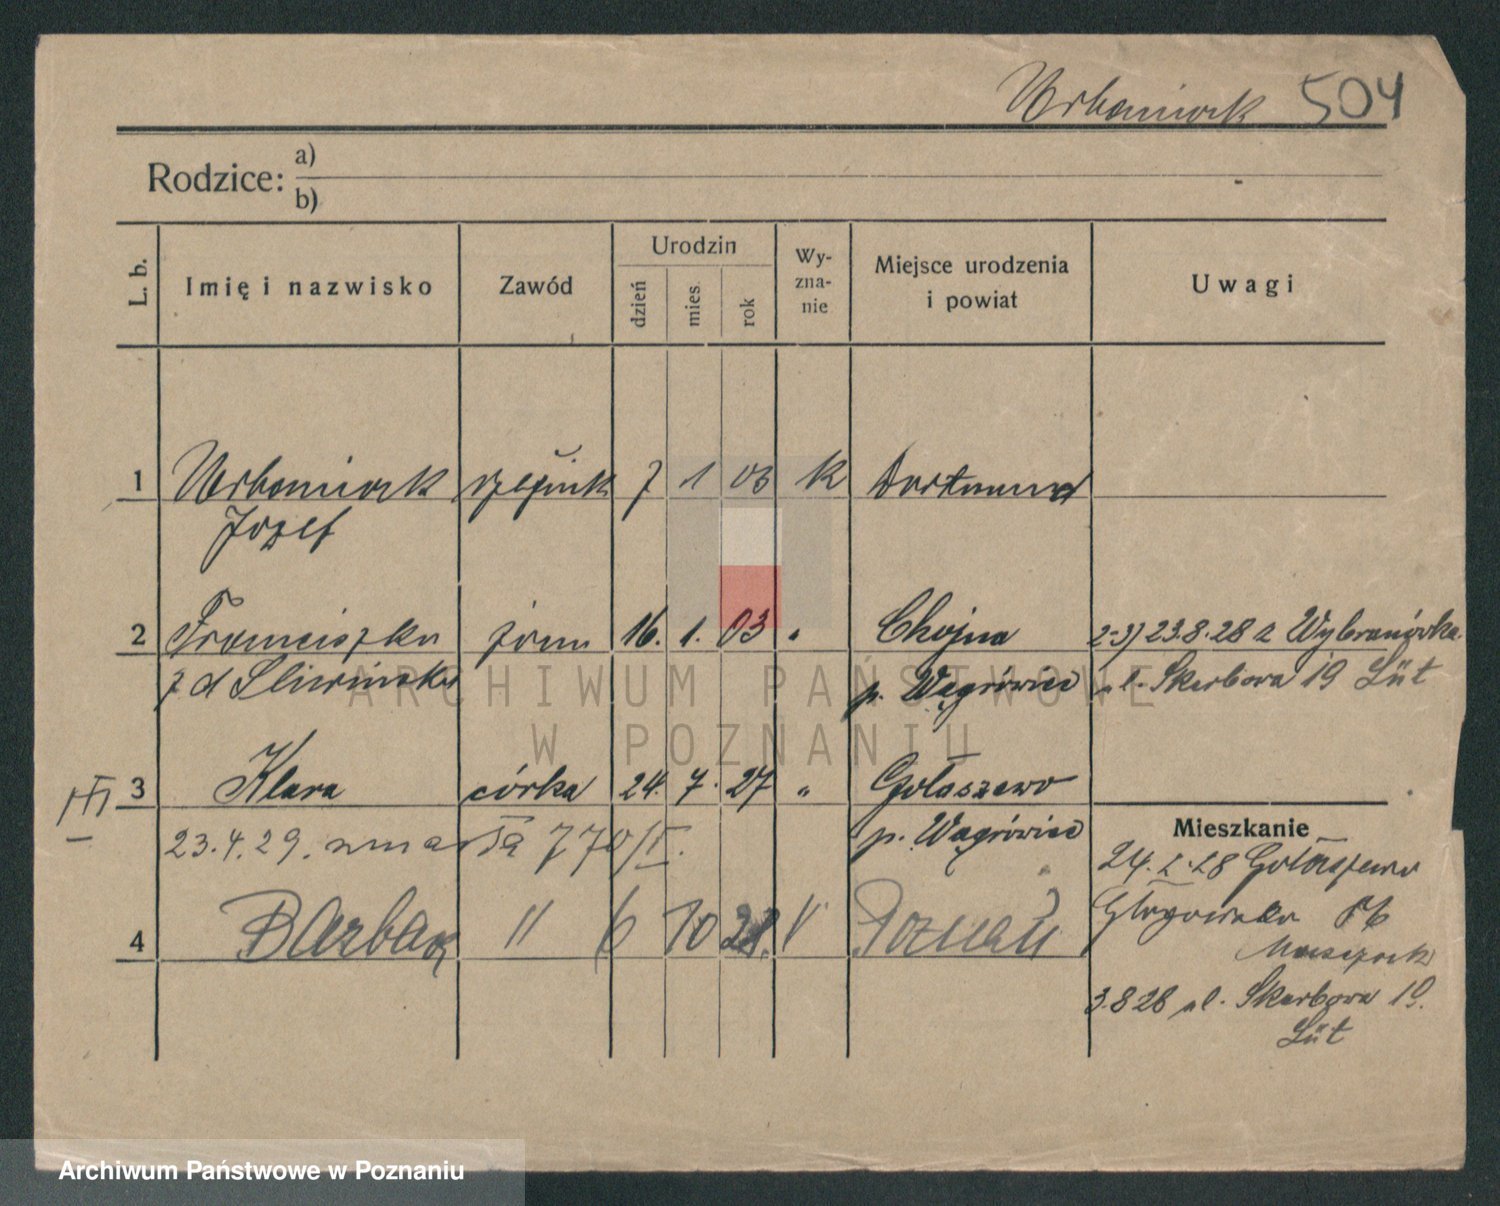 Urbaniak 504
Rodzice: a)
b)
L. b. Imię i nazwisko Zawód Urodzin dzień mies. rok Wy-zna-nie Miejsce urodzenia i powiat Uwagi
1 Urbaniak 7 1 03 k Dortmund
Józef
2 Franciszka żona 16. 1. 03 " Chojna 2-3) 23.8.28 z Wybranówka
z d Śliwińska p. Wągrówiec ul. Skarbowa 19 Lüt
ARCHIWUM PAŃSTWOWE
W POZNANIU
III 3 Klara córka 24. 7. 27 " Gołaszewo
23.4.29. zmarła 770/II. p. Wągrówiec
Mieszkanie
24. 2. 28 Gołaszewo
4 Barbara " 6 10 28. " Poznań Głogowska
3.8 28 ul. Skarbowa 19.
Lüt
Archiwum Państwowe w Poznaniu